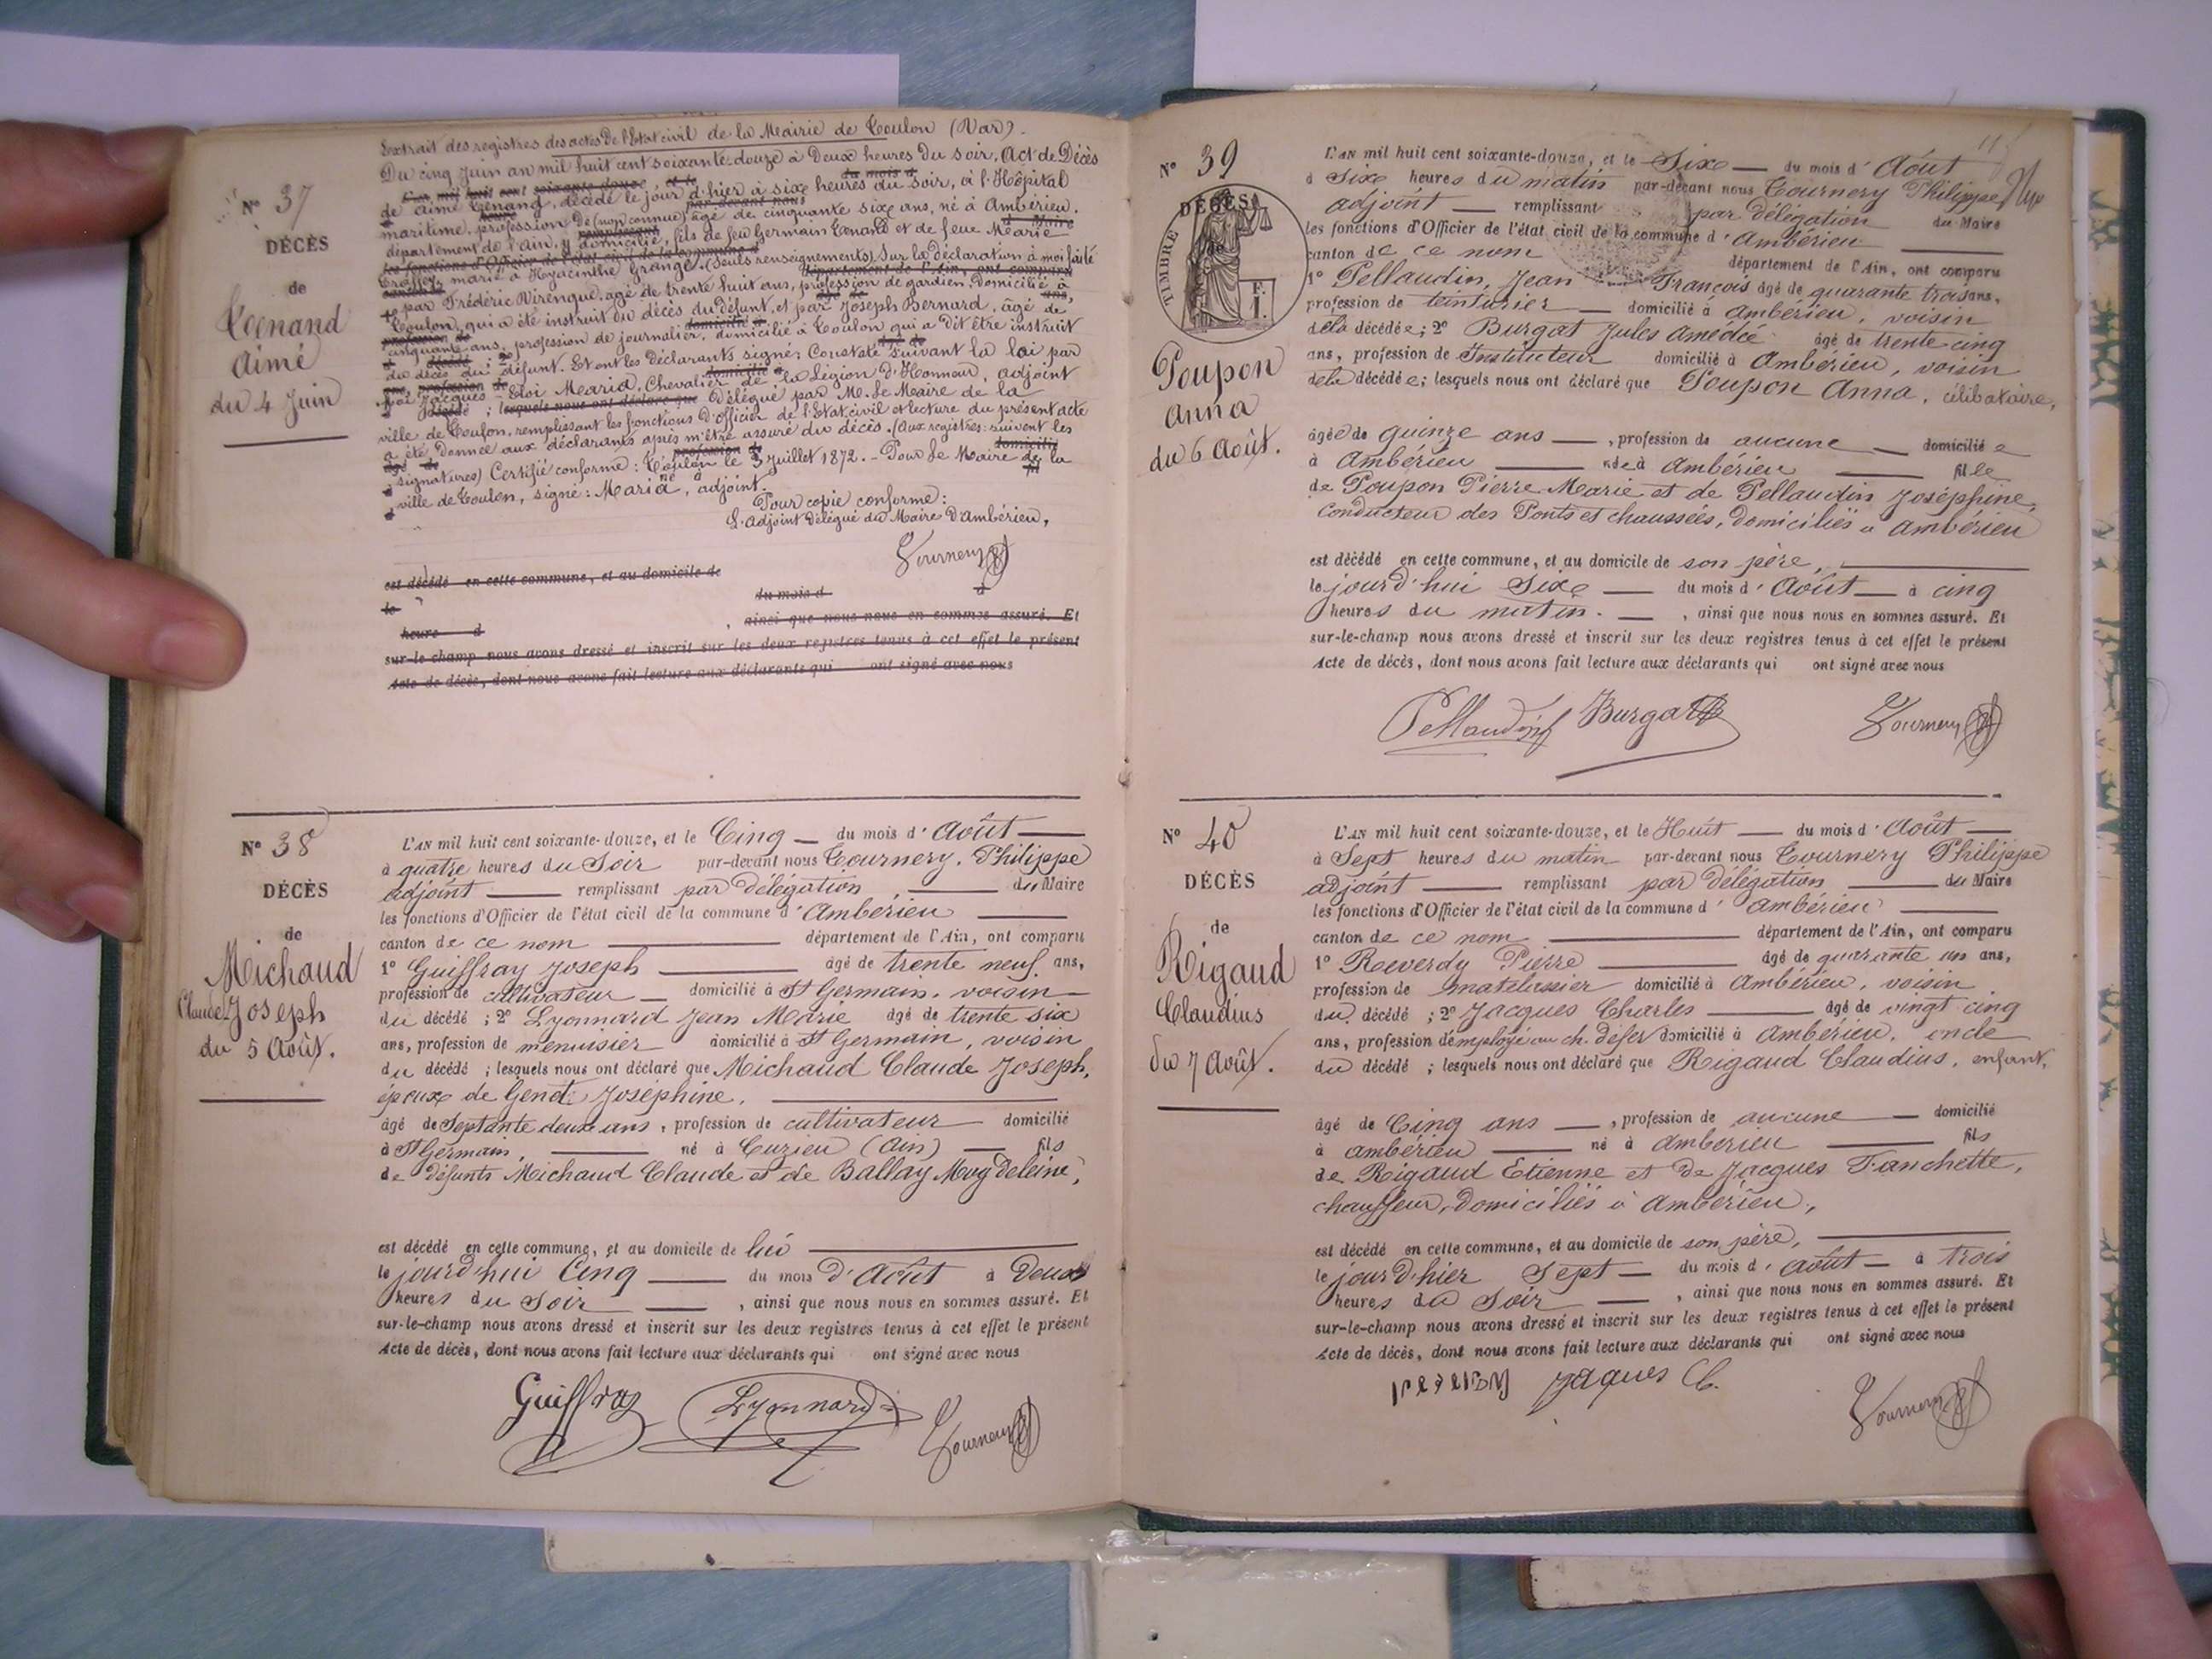 Extrait des registres des actes de l'Etat civil de la Mairie de Toulon (Var).
Du cinq Juin an mil huit cent soixante-douze à Deux heures du soir, Act de Décès
de aimé Tenand, décédé le jour d'hier à six heures du soir, à l'Hôpital
maritime, profession de (non connue) âgé de cinquante six ans, né à Ambérieu,
département de l'ain, y domicilié, fils de feu Germain Tenand et de feue Marie
marié à Hyacinthe Grange. (Seuls renseignements) Sur la déclaration à moi faite
par Frédéric Virenque, agé de trente huit ans, profession de gardien, domicilié à
Toulon, qui a été instruit du décès du défunt, et par Joseph Bernard, âgé de
cinquante ans, profession de journalier, domicilié à Toulon qui a dit être instruit
du décès du défunt. Et ont les déclarants signé; Constaté suivant la loi par
moi Jacques-Eloi Maria, Chevalier de la Légion d'Honneur, adjoint
Délégué par M. Le Maire de la
ville de Toulon, remplissant les fonctions d'officier de l'Etat civil et lecture du présent acte
a été donnée aux déclarants après m'être assuré du décès. (Aux registres suivent les
signatures) Certifié conforme: Toulon le 3 Juillet 1872. - Pour Le Maire de la
ville de Toulon, signé: Maria, adjoint.
Pour copie conforme:
L'adjoint Délégué du Maire d'Ambérieu,
Tournery
N° 37
DÉCÈS
de
Tenand
Aimé
du 4 Juin
est décédé en cette commune, et au domicile de
le
du mois d
à
heure d
, ainsi que nous nous en sommes assuré. Et
sur-le-champ nous avons dressé et inscrit sur les deux registres tenus à cet effet le présent
Acte de décès, dont nous avons fait lecture aux déclarants qui ont signé avec nous
N° 38
DÉCÈS
de
Michaud
Claude Joseph
du 5 Août.
L'AN mil huit cent soixante-douze, et le Cinq du mois d'Août
à quatre heures du Soir par-devant nous Tournery, Philippe
adjoint remplissant par délégation, du Maire
les fonctions d'Officier de l'état civil de la commune d'Ambérieu
canton de ce nom département de l'Ain, ont comparu
1° Guiffray Joseph âgé de trente neuf ans,
profession de cultivateur domicilié à St Germain, voisin
du décédé ; 2° Lyonnard Jean Marie âgé de trente six
ans, profession de menuisier domicilié à St Germain, voisin
du décédé ; lesquels nous ont déclaré que Michaud Claude Joseph,
époux de Gend Joséphine,
âgé de Septante deux ans, profession de cultivateur domicilié
à St Germain, né à Cuzieu (Ain) fils
de défunts Michaud Claude et de Ballay Magdeleine,
est décédé en cette commune, et au domicile de lui
le jourd'hui Cinq du mois d'Août à Deux
heures du Soir , ainsi que nous nous en sommes assuré. Et
sur-le-champ nous avons dressé et inscrit sur les deux registres tenus à cet effet le présent
Acte de décès, dont nous avons fait lecture aux déclarants qui ont signé avec nous
Guiffray Lyonnard Tournery
N° 39
DÉCÈS
TIMBRE
Poupon
Anna
du 6 Août.
L'AN mil huit cent soixante-douze, et le Six du mois d'Août
à Six heures du matin par-devant nous Tournery Philippe
adjoint remplissant par délégation du Maire
les fonctions d'Officier de l'état civil de la commune d'Ambérieu
canton de ce nom département de l'Ain, ont comparu
1° Pellaudin, Jean François âgé de quarante trois ans,
profession de teinturier domicilié à Ambérieu, voisin
de la décédée; 2° Burgat Jules Amédée âgé de trente cinq
ans, profession de Instituteur domicilié à Ambérieu, voisin
de la décédée; lesquels nous ont déclaré que Poupon Anna, célibataire,
âgée de quinze ans , profession de aucune domiciliée
à Ambérieu née à Ambérieu fille
de Poupon Pierre Marie et de Pellaudin Joséphine,
conducteur des Ponts et chaussées, domiciliés à Ambérieu
est décédé en cette commune, et au domicile de son père,
le jourd'hui Six du mois d'Août à cinq
heures du matin. , ainsi que nous nous en sommes assuré. Et
sur-le-champ nous avons dressé et inscrit sur les deux registres tenus à cet effet le présent
Acte de décès, dont nous avons fait lecture aux déclarants qui ont signé avec nous
Pellaudin Burgat Tournery
N° 40
DÉCÈS
de
Rigaud
Claudius
du 7 Août.
L'AN mil huit cent soixante-douze, et le Huit du mois d'Août
à Sept heures du matin par-devant nous Tournery Philippe
adjoint remplissant par délégation du Maire
les fonctions d'Officier de l'état civil de la commune d'Ambérieu
canton de ce nom département de l'Ain, ont comparu
1° Reverdy Pierre âgé de quarante un ans,
profession de matelassier domicilié à Ambérieu, voisin
du décédé ; 2° Jacques Charles âgé de vingt cinq
ans, profession d'employé au ch. de fer domicilié à Ambérieu, oncle
du décédé ; lesquels nous ont déclaré que Rigaud Claudius, enfant,
âgé de Cinq ans , profession de aucune domicilié
à ambérieu né à ambérieu fils
de Rigaud Etienne et de Jacques Fanchette,
chauffeur, domiciliés à Ambérieu,
est décédé en cette commune, et au domicile de son père,
le jour d'hier Sept du mois d'août à trois
heures du Soir , ainsi que nous nous en sommes assuré. Et
sur-le-champ nous avons dressé et inscrit sur les deux registres tenus à cet effet le présent
Acte de décès, dont nous avons fait lecture aux déclarants qui ont signé avec nous
Jaques Ch. Tournery